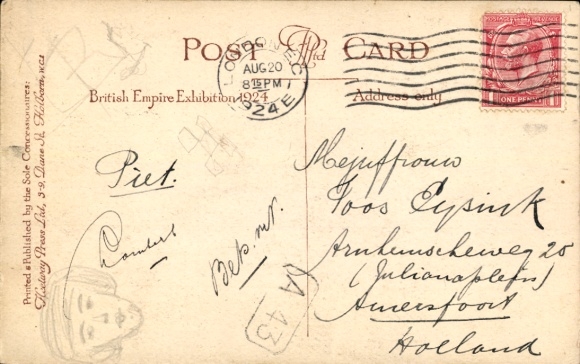 POST CARD
British Empire Exhibition 1924
Address only
LONDON
AUG 20
8 15 PM
1924 E
POSTAGE REVENUE
ONE PENNY
Printed & Published by the Sole Concessionaires:
Fleetway Press Ltd., 3-9, Dane St. Holborn, W.C.1
Piet.
Bep.
A 43
Mejuffrouw
Toos Eysink
Arnhemscheweg 25
(Julianaplein)
Amersfoort
Holland